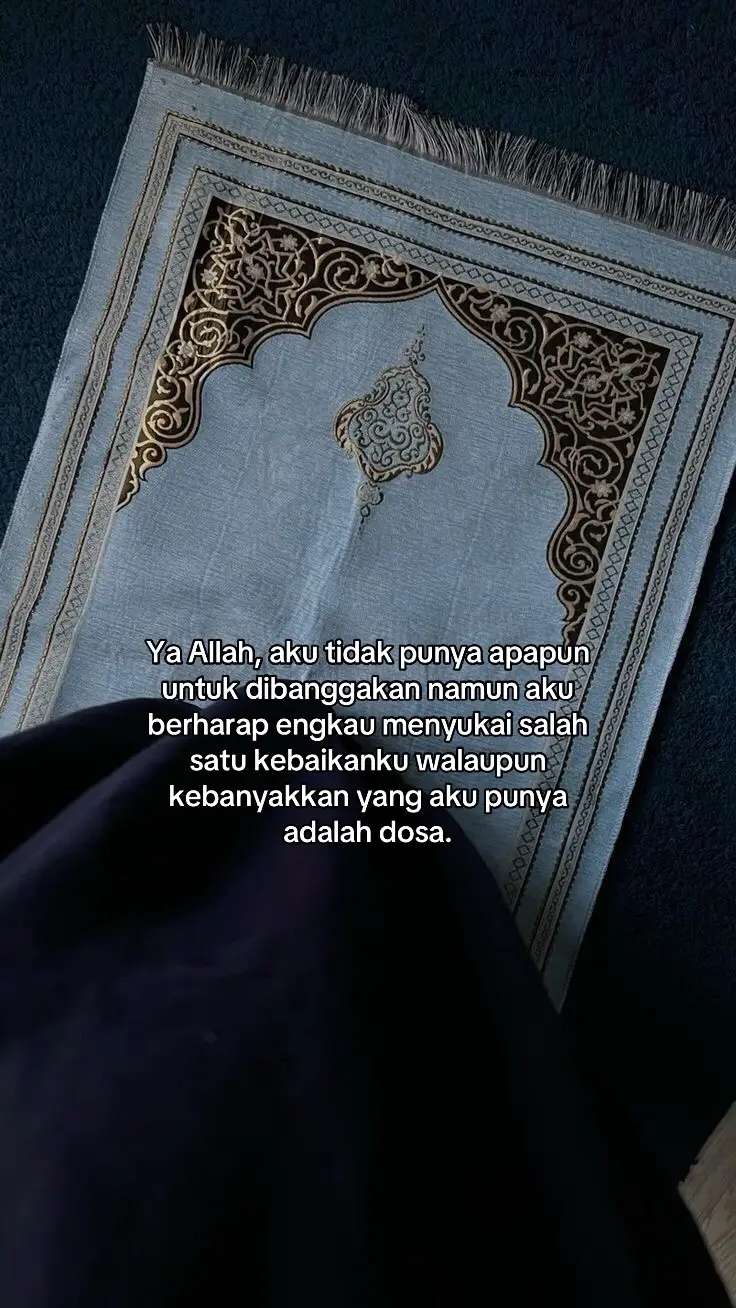 Ya Allah, aku tidak punya apapun
untuk dibanggakan namun aku
berharap engkau menyukai salah
satu kebaikanku walaupun
kebanyakkan yang aku punya
adalah dosa.